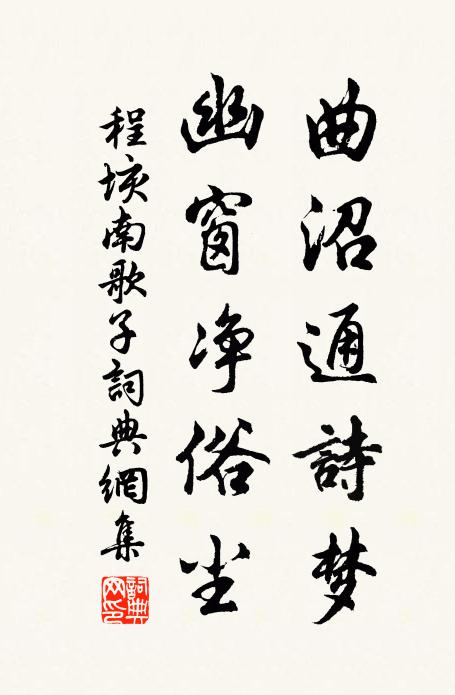 曲沼通詩梦
幽窗净俗尘
程垓南歌子詞典網集
詞典網印